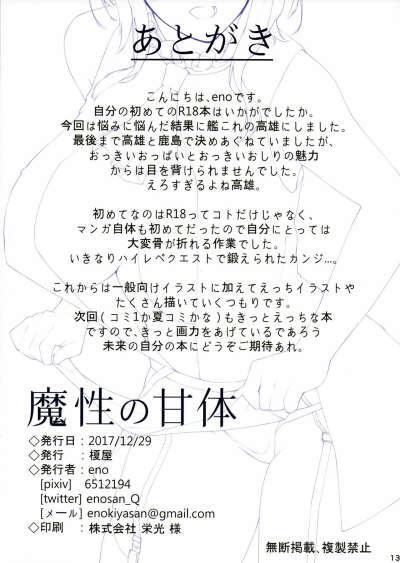 あとがき
こんにちは、enoです。
自分の初めてのR18本はいかがでしたか。
今回は悩みに悩んだ結果に艦これの高雄にしました。
最後まで高雄と鹿島で決めあぐねていましたが、
おっきいおっぱいとおっきいおしりの魅力
からは目を背けられませんでした。
えろすぎるよね高雄。
初めてなのはR18ってコトだけじゃなく、
マンガ自体も初めてだったので自分にとっては
大変骨が折れる作業でした。
いきなりハイレベクエストで鍛えられたカンジ…。
これからは一般向けイラストに加えてえっちイラストや
たくさん描いていくつもりです。
次回(コミ1か夏コミかな)もきっとえっちな本
ですので、きっと画力をあげているであろう
未来の自分の本にどうぞご期待あれ。
魔性の甘体
◇発行日:2017/12/29
◇発行:榎屋
◇発行者:eno
[pixiv] 6512194
[twitter] enosan_Q
[メール] enokiyasan@gmail.com
◇印刷:株式会社 栄光 様
無断掲載、複製禁止
13